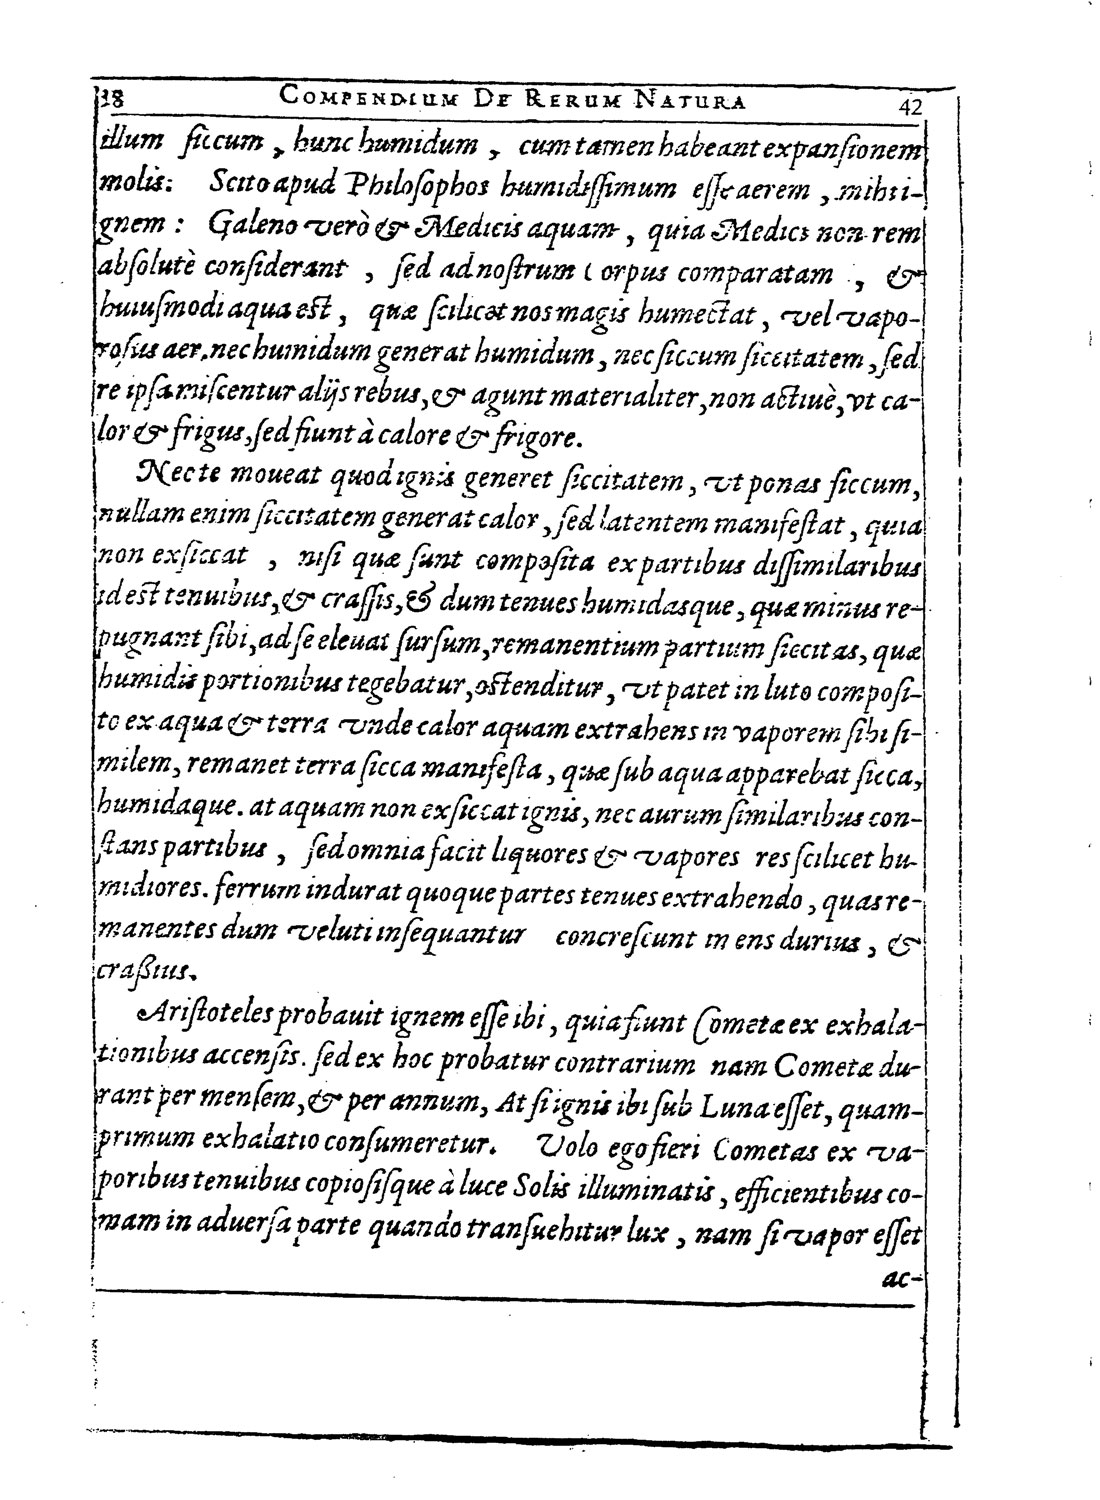 38 COMPENDIUM DE RERUM NATURA 42
illum ſiccum, hunc humidum, cum tamen habeant expanſionem
molis: Scito apud Philoſophos humidiſſimum eſſe aerem, mihi i-
gnem: Galeno verò & Medicis aquam, quia Medici non rem
abſolutè conſiderant, ſed ad noſtrum Corpus comparatam, &
huiuſmodi aqua eſt, quæ ſcilicet nos magis humectat, vel vapo-
roſus aer, nec humidum generat humidum, nec ſiccum ſiccitatem, ſed
re ipſa miſcentur alijs rebus, & agunt materialiter, non actiuè, vt ca-
lor & frigus, ſed fiunt à calore & frigore.
Nec te moueat quod ignis generet ſiccitatem, vt ponas ſiccum,
nullam enim ſiccitatem generat calor, ſed latentem manifeſtat, quia
non exſiccat, niſi quæ ſunt compoſita ex partibus diſſimilaribus
id eſt tenuibus, & craſſis, & dum tenues humidasque, quæ minus re-
pugnant ſibi, ad ſe eleuat ſurſum, remanentium partium ſiccitas, quæ
humidis portionibus tegebatur, oſtenditur, vt patet in luto compoſi-
to ex aqua & terra vnde calor aquam extrahens in vaporem ſibi ſi-
milem, remanet terra ſicca manifeſta, quæ ſub aqua apparebat ſicca,
humidaque. at aquam non exſiccat ignis, nec aurum ſimilaribus con-
ſtans partibus, ſed omnia facit liquores & vapores res ſcilicet hu-
midiores. ferrum indurat quoque partes tenues extrahendo, quas re-
manentes dum veluti inſequantur concreſcunt in ens durius, &
craßius.
Ariſtoteles probauit ignem eſſe ibi, quia fiunt Cometæ ex exhala-
tionibus accenſis. ſed ex hoc probatur contrarium nam Cometæ du-
rant per menſem, & per annum, At ſi ignis ibi ſub Luna eſſet, quam-
primum exhalatio conſumeretur. Volo ego fieri Cometas ex va-
poribus tenuibus copioſiſque à luce Solis illuminatis, efficientibus co-
mam in aduerſa parte quando tranſuehitur lux, nam ſi vapor eſſet
ac-